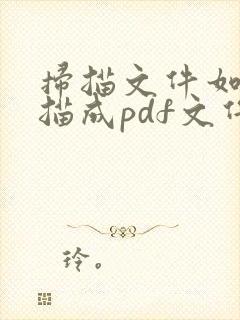 掃描文件如
描成pdf文件
玲。